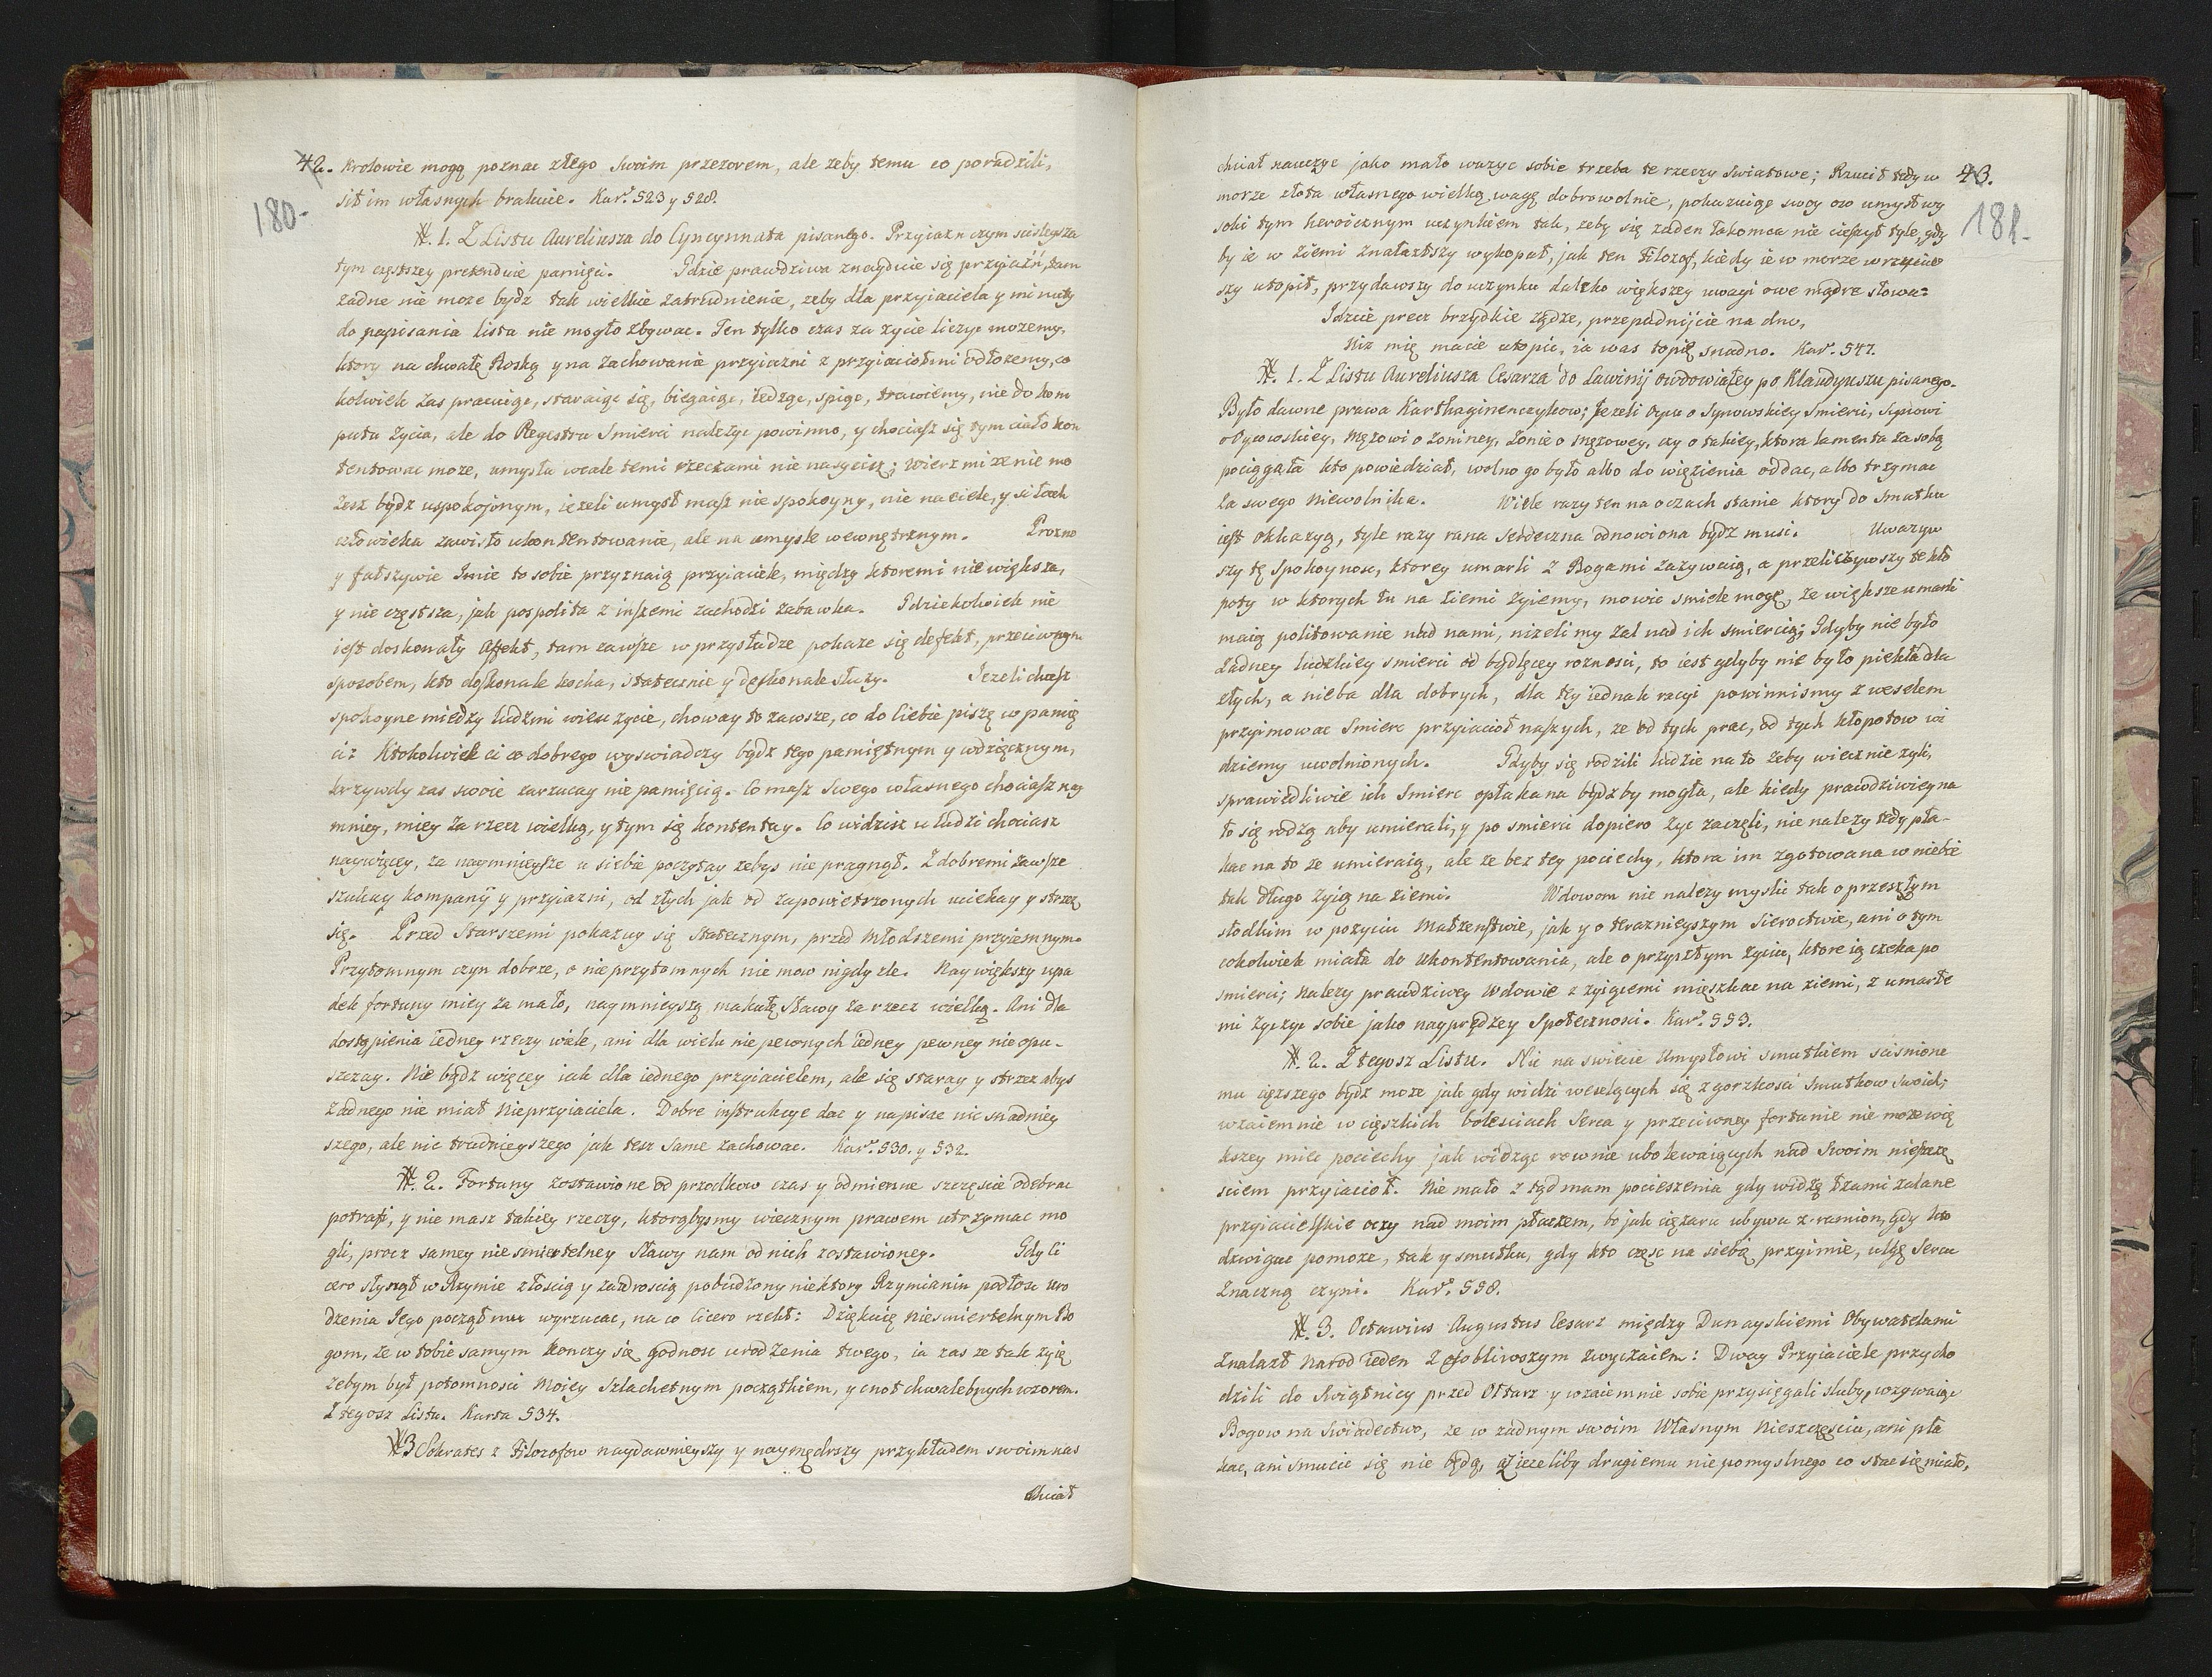 42. Krolowie mogą poznac złego swoim przezorem, ale zeby temu co poradzili,
180-
sił im własnych brakuie. Kar. 523 y 528.
1. Z Listu Aureliusza do Cyncynnata pisanego. Przyiazn czym scislejsza
tym częstszey pretenduie pamięci. Gdzie prawdziwa znayduie się przyjaźń, tam
zadne nie moze bydz tak wielkie zatrudnienie, zeby dla przyiaciela y minuty
do napisania lista nie mogło zbywac. Ten tylko czas za zycie liczyc mozemy,
ktory na chwałę Boską y na zachowanie przyiazni z przyiaciołmi odłozemy, co
kolwiek zas pracuiąc, staraiąc się, biegaiąc, iedząc, spiąc, trawiemy, nie do kom
putu zycia, ale do Regestru Smierci nalezyc powinno, y chociasz się tym ciało kon
tentowac moze, umysłu wcale temi rzeczami nie nasycisz; wierz mi ze nie mo
zesz bydz uspokojonym, iezeli umysł masz nie spokoyny, nie na ciele, y siłach
człowieka zawisło ukontentowanie, ale na umysle wewnętrznym. Prozno
y fałszywie Imie to sobie przyznaią przyiaciele, między ktoremi nie większa,
y nie częstsza, jak pospolita z inszemi zachodzi zabawka. Gdziekolwiek nie
iest doskonały Affekt, tam zawsze w przysładze pokaze się defekt, przeciwnym
sposobem, kto doskonale kocha, statecznie y doskonale słuzy. Iezeli chcesz
spokoyne między ludzmi wieu zycie, choway to zawsze, co do Ciebie piszę w pamię
ci: Ktokolwiek ci co dobrego wyswiadczy bądz tego pamiętnym y wdzięcznym,
krzywdy zas swoie zarzucay niepamięcią. Co masz swego własnego chociasz nay
mniey, miey za rzecz wielką, y tym się kontentuy. Co widzisz u ludzi chociasz
naywięcy, za naymnieysze u siebie poczytay zebys nie pragnął. Z dobremi zawsze
szukay kompanij y przyiazni, od złych jak od zapowietrzonych uciekay y strzez
się. Przed Starszemi pokazuy się statecznym, przed Młodszemi przyiemnym.
Przytomnym czyn dobrze, o nieprzytomnych nie mow nigdy zle. Naywiększy upa
dek fortuny miey za mało, naymnieyszą makułę Sławy za rzecz wielką. Ani dla
dostąpienia iedney rzeczy wiele, ani dla wielu niepewnych iedney pewney nie opu-
szczay. Nie bądz więcey iak dla iednego przyiacielem, ale się staray y strzez abys
zadnego nie miał Nieprzyiaciela. Dobre instrukcye dac y napisac nic snadniey
szego, ale nic trudnieyszego jak tesz same zachowac. Kar. 530. y 532.
2. Fortuny zostawione od przodkow czas y odmienne szczęscie odebrac
potrafi, y nie masz takiey rzeczy, ktorąbysmy wiecznym prawem utrzymac mo
gli, procz samey niesmiertelney Sławy nam od nich zostawioney. Gdy Ci
cero słynął w Rzymie złoscią y zazdroscią pobudzony niektory Rzymianin podłosc uro
dzenia Iego począł mu wyrzucac, na co Cicero rzekł: Dziękuię Niesmiertelnym Bo
gom, ze w tobie samym konczy się godnosc urodzenia twego, ia zas ze tak zyię
zebym był potomnosci Moiey Szlachetnym początkiem, y cnot chwalebnych wzorem.
Z tegosz Listu. Karta 534.
3 Sokrates z Filozofow naydawnieyszy y naymędrszy przykładem swoim nas
chciał
chciał nauczyc jako mało wazyc sobie trzeba te rzeczy swiatowe; Rzucił tedy w 43.
morze złota własnego wielką wagę dobrowolnie, pokazuiąc swoy ow umysł wy
181-
soki tym heroicznym uczynkiem tak, zeby się zaden Łakomca nie cieszył tyle, gdy
by ie w ziemi znalazłszy wykopał, jak ten Filozof, kiedy ie w morze wrzuciw
szy utopił, przydawszy do uczynku daleko większey uwagi owe mądre słowa:
Idzcie precz brzydkie ządze, przepadnijcie na dno,
Niz mię macie utopic, ia was topię snadno. Kar. 547.
1. Z Listu Aureliusza Cesarza do Lawinij owdowiałey po Klaudyuszu pisanego.
Było dawne prawa Karthaginenczykow; Jezeli Oycu o Synowskiey Smierci, Synowi
o Oycowskiey, Męzowi o Zoniney, Zonie o męzowey, czy o takiey, ktora lamenta za sobą
pociągała kto powiedział, wolno go było albo do więzienia oddac, albo trzymac
za swego Niewolnika. Wiele razy ten na oczach stanie ktory do Smutku
iest okkazyą, tyle razy rana serdeczna odnowiona bydz musi. Uwazyw
szy tę spokoynosc, ktorey umarli z Bogami zazywaią, a przeliczywszy te kło
poty w ktorych tu na ziemi zyiemy, mowic smiele mogę, ze większe umarli
maią politowanie nad nami, nizeli my zal nad ich smiercią; Gdyby nie było
zadney ludzkiey smierci od bydlęcey roznosci, to iest gdyby nie było piekła dla
złych, a nieba dla dobrych, dla tey iednak racyi powinnismy z weselem
przyimowac Smierc przyiacioł naszych, ze od tych prac, od tych kłopotow wi
dziemy uwolnionych. Gdyby się rodzili ludzie na to zeby wiecznie zyli,
sprawiedliwie ich Smierc opłakana bydzby mogła, ale kiedy prawdziwiey na
to się rodzą aby umierali, y po smierci dopiero zyc zaczęli, nie nalezy tedy pła-
kac na to ze umieraią, ale ze bez tey pociechy, ktora im zgotowana w niebie
tak długo zyią na ziemi. Wdowom nie nalezy myslic tak o przeszłym
słodkim w pozyciu Małzenstwie, jak y o terazniejszym sieroctwie, ani o tym
cokolwiek miała do ukontentowania, ale o przyszłym zyciu, ktore ią czeka po
smierci; Nalezy prawdziwey Wdowie z zyiącemi mięszkac na ziemi, z umarłe
mi zyczyc sobie jako nayprędzey Społecznosci. Kar. 553.
2. Z tegosz Listu. Nic na swiecie Umysłowi smutkiem scisnione
mu cięzszego bydz moze jak gdy widzi weselących się z gorzkosci Smutkow swoich;
wzaiemnie w cięszkich bolesciach Serca y przeciwney fortunie nie moze wię
kszey miec pociechy jak widząc rownie ubolewaiących nad swoim nieszczę
sciem przyiacioł. Nie mało z tąd mam pocieszenia gdy widzę łzami zalane
przyiacielskie oczy nad moim płaczem, bo jak cięzaru ubywa z ramion, gdy kto
dzwigac pomoze, tak y smutku, gdy kto częsc na siebie przyimie, ulgę Sercu
znaczną czyni. Kar. 558.
3. Octawius Augustus Cesarz między Dunayskiemi Obywatelami
znalazł Narod ieden z osobliwszym zwyczaiem: Dway Przyiaciele przycho
dzili do Swiątnicy przed Ołtarz y wzaiemnie sobie przysięgali sluby, wzywaiąc
Bogow na swiadectwo, ze w zadnym swoim Własnym Nieszczęsciu, ani pła
kac, ani smucic się nie będą, a iezeliby drugiemu niepomyslnego co stac się miało,